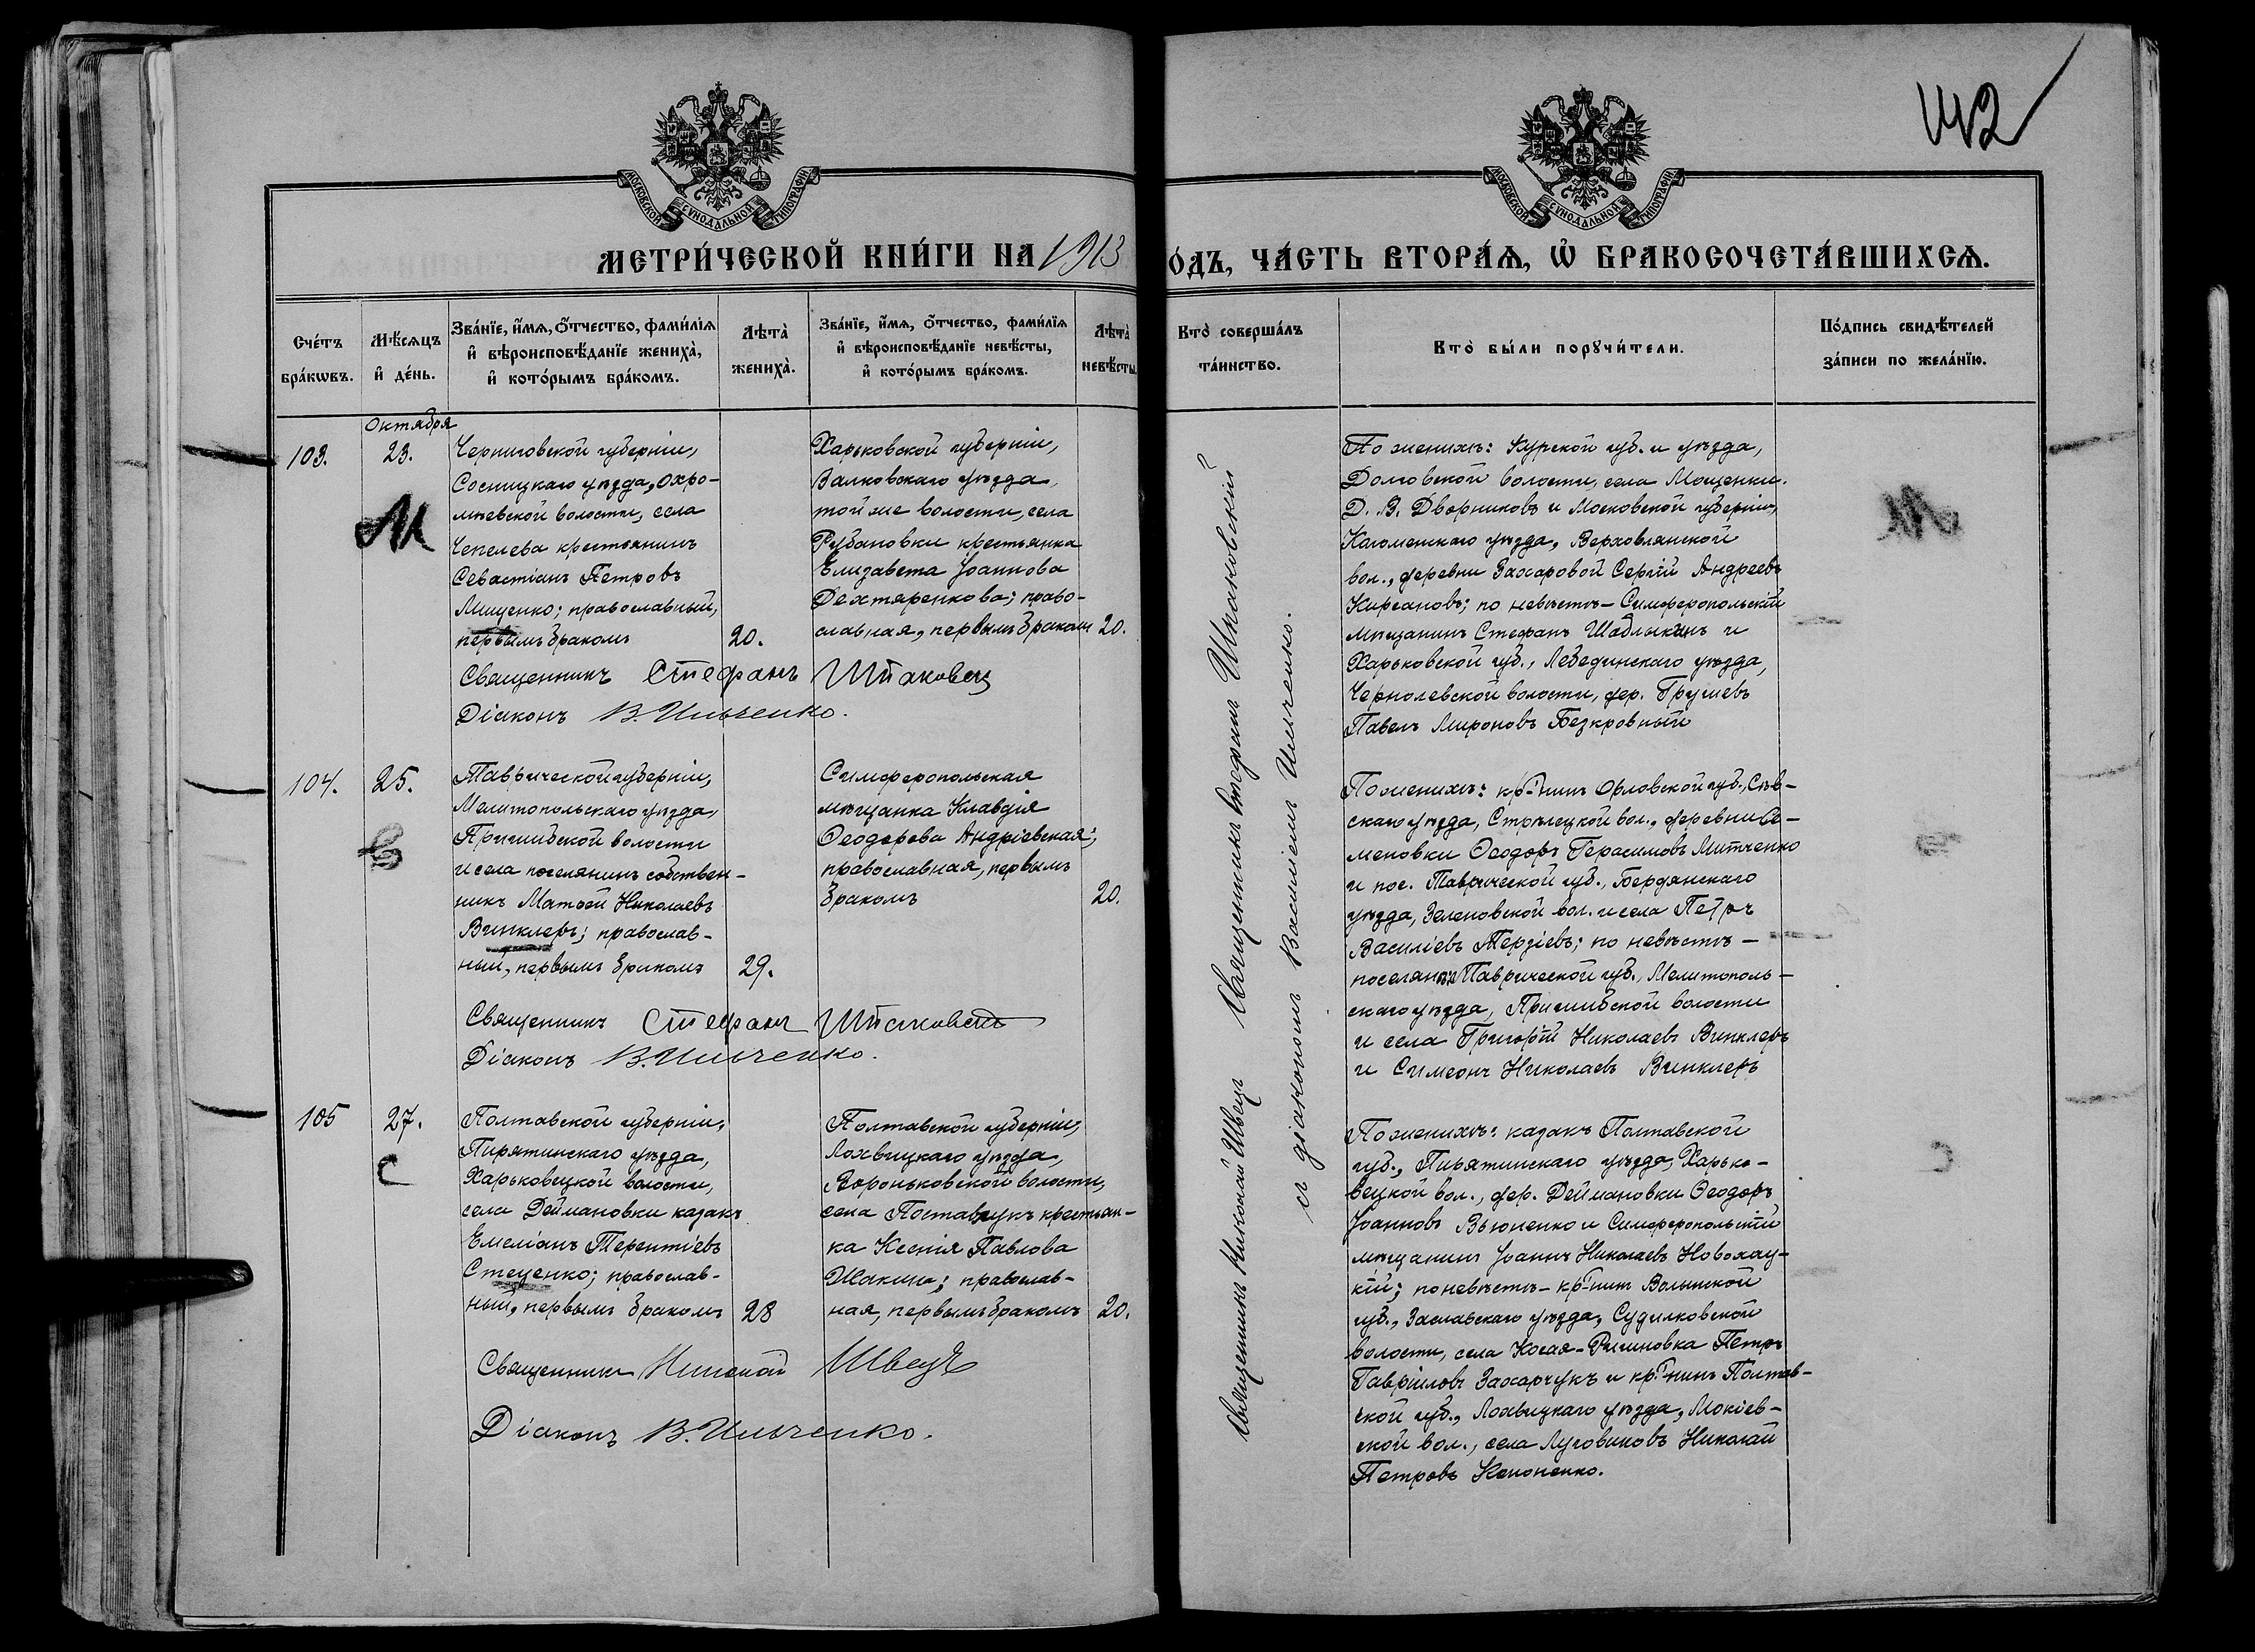 142
МОСКОВСКОЙ СѴНОДАЛЬНОЙ ТИПОГРАФІИ
МОСКОВСКОЙ СѴНОДАЛЬНОЙ ТИПОГРАФІИ
МЕТРИ́ЧЕСКОЙ КНИ́ГИ НА 1913
ОДЪ, ЧА́СТЬ ВТОРА́Ѧ, Ѽ БРАКОСОЧЕТА́ВШИХСѦ.
Сче́тъ бра́кѡвъ.
Мѣ́сѧцъ и҆ де́нь.
Зва́нїе, и҆́мѧ, ѻ҆́тчество, фами́лїѧ
и҆ вѣроисповѣ́данїе жениха̀,
и҆ кото́рымъ бра́комъ.
Лѣта̀ жениха̀.
Зва́нїе, и҆́мѧ, ѻ҆́тчество, фами́лїѧ
и҆ вѣроисповѣ́данїе невѣ́сты,
и҆ кото́рымъ бра́комъ.
Лѣта̀ невѣ́сты.
Кто̀ соверша́лъ
та́инство.
Кто̀ бы́ли порꙋчи́тели.
По́дпись свидѣ́телей
за́писи по жела́нїю.
Октября
103.
23.
М
Черниговской губерніи,
Сосницкаго уѣзда, Охро-
мѣевской волости, села
Чепелева крестьянинъ
Севастіанъ Петровъ
Мищенко; православный,
первымъ бракомъ
20.
Харьковской губерніи,
Валковскаго уѣзда,
той же волости, села
Рубановки крестьянка
Елизавета Іоаннова
Дехтяренкова; право-
славная, первымъ бракомъ
20.
Священникъ Стефанъ Шпаковск
Діаконъ В. Ильченко.
По женихѣ: Курской губ. и уѣзда,
Долговской волости, села Мощенки.
Д. В. Дворниковъ и Московской губерніи,
Коломенскаго уѣзда, Верховлянской
вол., деревни Захаровой Сергій Андреевъ
Кирсановъ; по невѣстѣ – Симферопольскій
мѣщанинъ Стефанъ Шаблыкинъ и
Харьковской губ., Лебединскаго уѣзда,
волости, дер. Грушевъ
Павелъ Мироновъ Безкровный
104.
25.
Таврической губерніи,
Мелитопольскаго уѣзда,
Пришибской волости
и села поселянинъ собствен-
никъ Матѳей Николаевъ
Винклеръ; православ-
ный, первымъ бракомъ
29.
Симферопольская
мѣщанка Клавдія
Ѳеодорова Андріевская;
православная, первымъ
бракомъ
20.
Священникъ Стефанъ Шпаковскій
Діаконъ В. Ильченко.
По женихѣ: кр-нинъ Орловской губ., Сѣв-
скаго уѣзда, Стрѣлецкой вол., деревни Се-
меновки Ѳеодоръ Герасимовъ Митченко
и пос. Таврической губ., Бердянскаго
уѣзда, Зеленовской вол. и села Петръ
Василіевъ Терзіевъ; по невѣстѣ –
поселяне Таврической губ., Мелитополь-
скаго уѣзда, Пришибской волости
и села Григорій Николаевъ Винклеръ
и Симеонъ Николаевъ Винклеръ
105
27.
С
Полтавской губерніи,
Пирятинскаго уѣзда,
Харьковецкой волости,
села Деймановки казакъ
Емеліанъ Терентіевъ
Стеценко; православ-
ный, первымъ бракомъ
28
Полтавской губерніи,
Лохвицкаго уѣзда,
Вороньковской волости,
села Поставмукъ крестьян-
ка Ксенія Павлова
Шакина; православ-
ная, первымъ бракомъ
20.
Священникъ Николай Швецъ
Діаконъ В. Ильченко.
По женихѣ: казакъ Полтавской
губ., Пирятинскаго уѣзда, Харько-
вецкой вол., дер. Деймановки Ѳеодоръ
Іоанновъ Вьюненко и Симферопольскій
мѣщанинъ Іоаннъ Николаевъ Новохац-
кій; по невѣстѣ – кр-нинъ Волынской
губ., Заславскаго уѣзда, Судилковской
волости, села Петръ
Гавріиловъ Захарчукъ и кр-нинъ Полтав-
ской губ., Лохвицкаго уѣзда, Мокіев-
ской вол., села Луговиковъ Николай
Петровъ Кононенко.
Священникъ Николай Швецъ Священникъ Стефанъ Шпаковскій
съ діакономъ Василіемъ Ильченко.